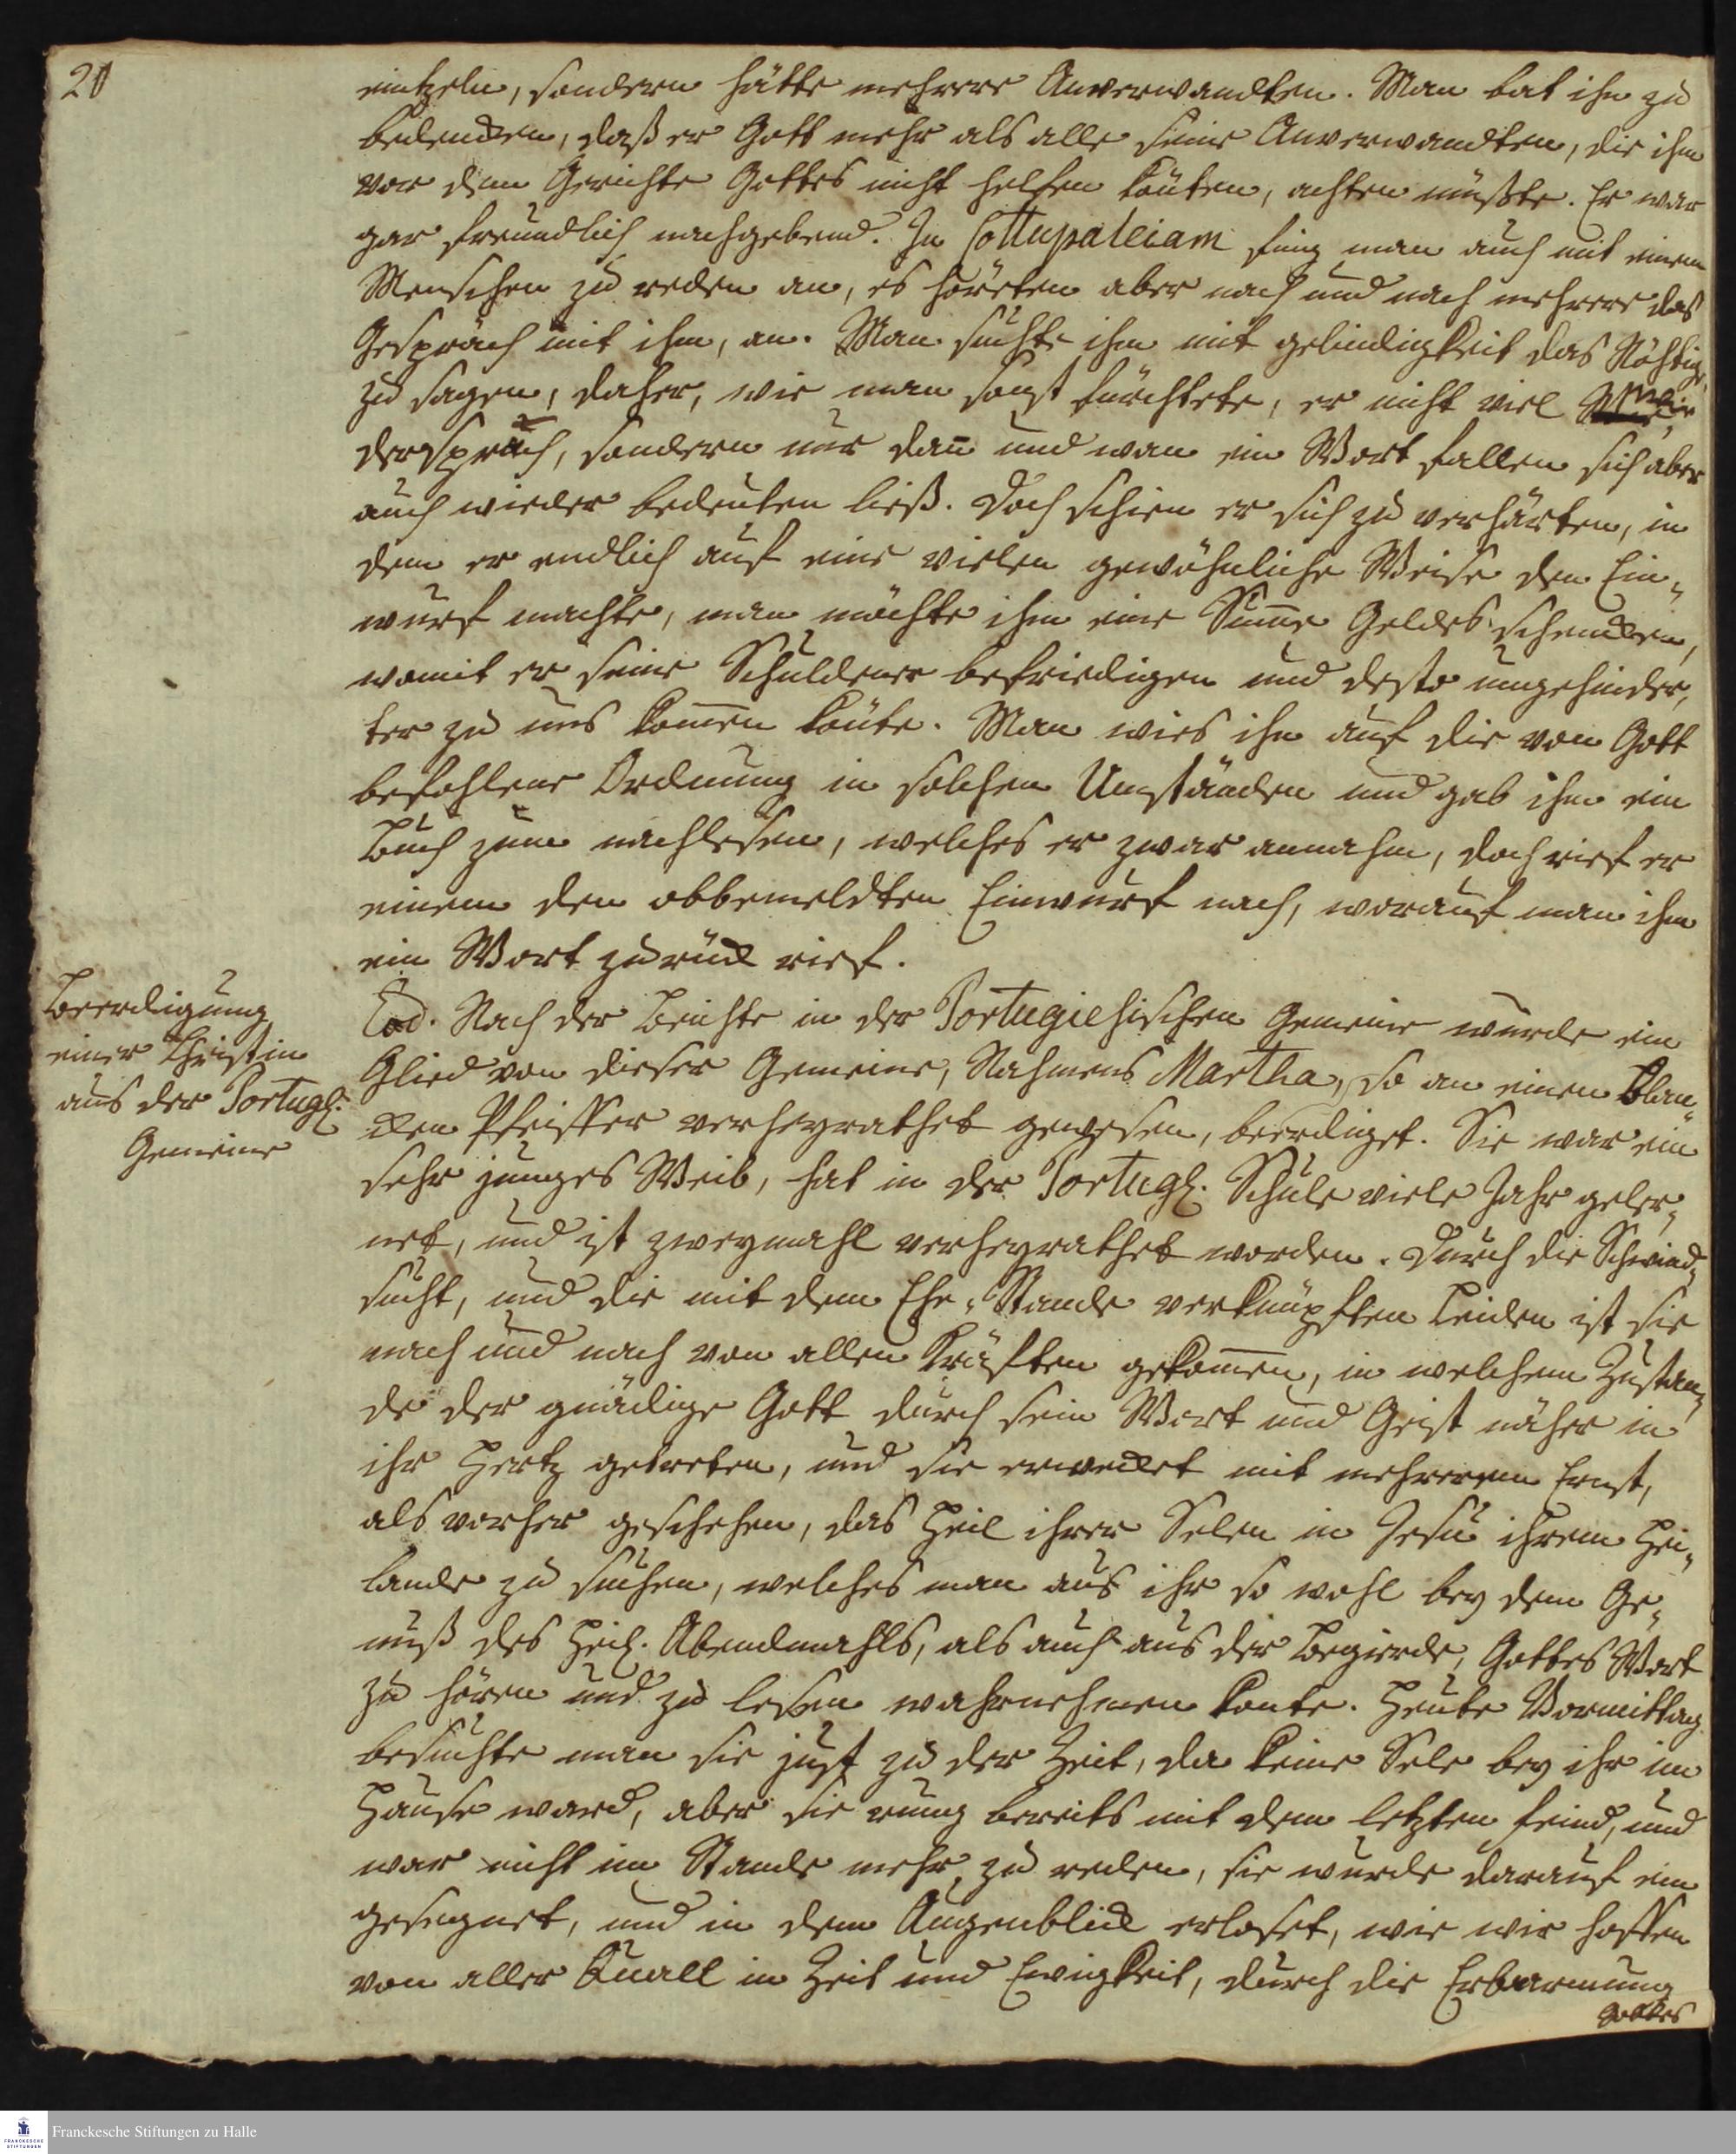 20
eintzeln, sondern hätte mehrere Anverwandten. Man bat ihn zu
bedencken, daß er Gott mehr als alle seine Anverwandten, die ihm
vor dem Gerichte Gottes nicht helfen könten, achten müßte. Er war
gar freundlich nachgebend. In Cottupaleiam fing man auch mit einem
Menschen zu reden an, es höreten aber nach und nach mehrere das
Gespräch mit ihm, an. Man suchte ihm mit gelindigkeit das Nöhtige
zu sagen, daher, wie man sonst fürchtete, er nicht viel wie
dersprach, sondern nur dañ und wan ein Wort fallen sich aber
auch wieder bedeuten ließ. Doch schien er sich zu verhärten, in
dem er endlich auf eine vielen gewöhnliche Weise den Ein-
wurf machte, man möchte ihm eine Sum̄e Geldes schencken,
womit er seine Schuldener befriedigen und desto ungehinder-
ter zu uns kom̄en könte. Man wies ihn auf die von Gott
befohlene Ordnung in solchen Umständen und gab ihm ein
Buch zum nachlesen, welches er zwar annahm, doch rief er
einem den obbemeldten Einwurf nach, worauf man ihm
ein Wort zurück rief.
Beerdigung
einer Christin
aus der Portugl.
Gemeine
Eod. Nach der Beichte in der Portugiesischen Gemeine wurde ein
Glied von dieser Gemeine, Nahmens Martha, so an einen Blan-
cken Pfeiffer verheyrathet gewesen, beerdiget. Sie war ein
sehr junges Weib, hat in der Portugl. Schule viele Jahr geler-
net, und ist zweymahl verheyrathet worden. Durch die Schwind-
sucht, und die mit dem Ehe-Stande verknüpften Leiden ist sie
nach und nach von allen Kräften gekom̄en, in welchem Zustan-
de der gnädige Gott durch sein Wort und Geist näher in
ihr Hertz getreten, und sie erwecket mit mehrerem Ernst,
als vorher geschehen, das Heil ihrer Selen in Jesu ihrem Hei-
lande zu suchen, welches man aus ihr so wohl bey dem Ge-
nuß des Heil. Abendmahls, als auch aus der Begierde, Gottes Wort
zu hören und zu lesen wahrnehmen konte. Heute Vormittag
besuchte man sie just zu der Zeit, da keine Sele bey ihr im
Hause ward, aber sie rung bereits mit dem letzten feind, und
war nicht im Stande mehr zu reden, sie wurde darauf ein
gesegnet, und in dem Augenblick erloset, wie wir hoffen
von aller Quall in Zeit und Ewigkeit, durch die Erbarmung
Gottes
Franckesche Stiftungen zu Halle